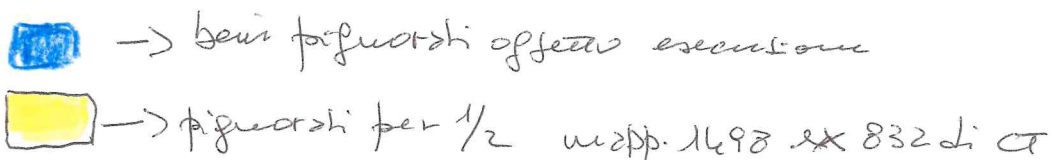 → beni pignorati oggetto esecuzione
→ pignorati per 1/2 mapp. 1498 ex 832 di CT